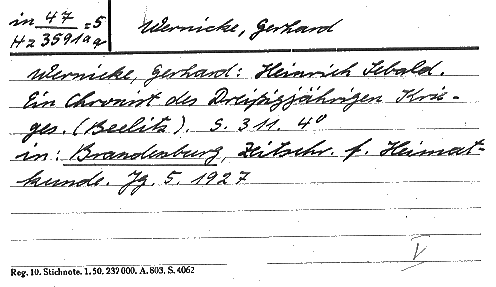 in 47 = 5
Hz 3591a q
Wernicke, Gerhard
Wernicke, Gerhard: Heinrich Sebald.
Ein Chronist des Dreißigjährigen Krie-
ges. (Beelitz). S. 311. 4°
in: Brandenburg, Zeitschr. f. Heimat-
kunde. Jg. 5. 1927
V
Reg. 10. Stichnote. 1. 50. 232000. A. 803. S. 4062